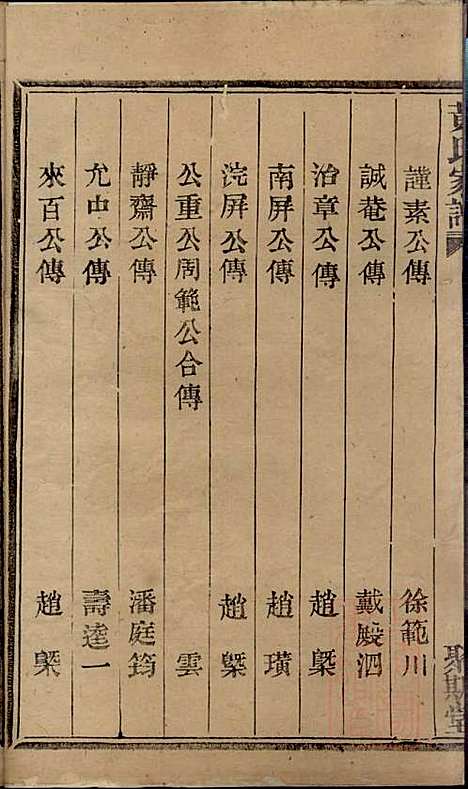 黃氏家譜
聚斯堂
謹素公傳 徐範川
誠菴公傳 戴殿泗
治章公傳 趙槼
南屏公傳 趙璜
浣屏公傳 趙槼
公重公周範公合傳 雲
靜齋公傳 潘庭筠
允中公傳 壽達一
來百公傳 趙槼